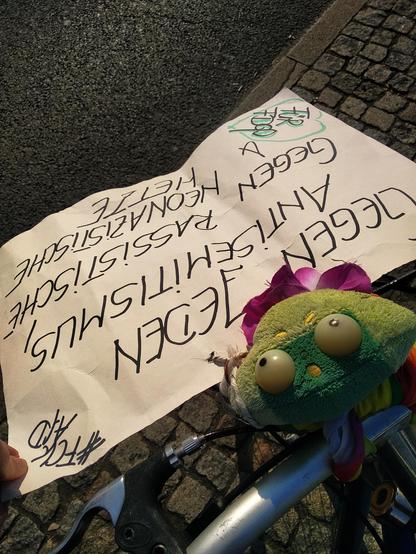 #FCK
AFD
GEGEN JEDEN
ANTISEMITISMUS,
GEGEN RASSISTISCHE
& NEONAZISTISCHE
HETZE